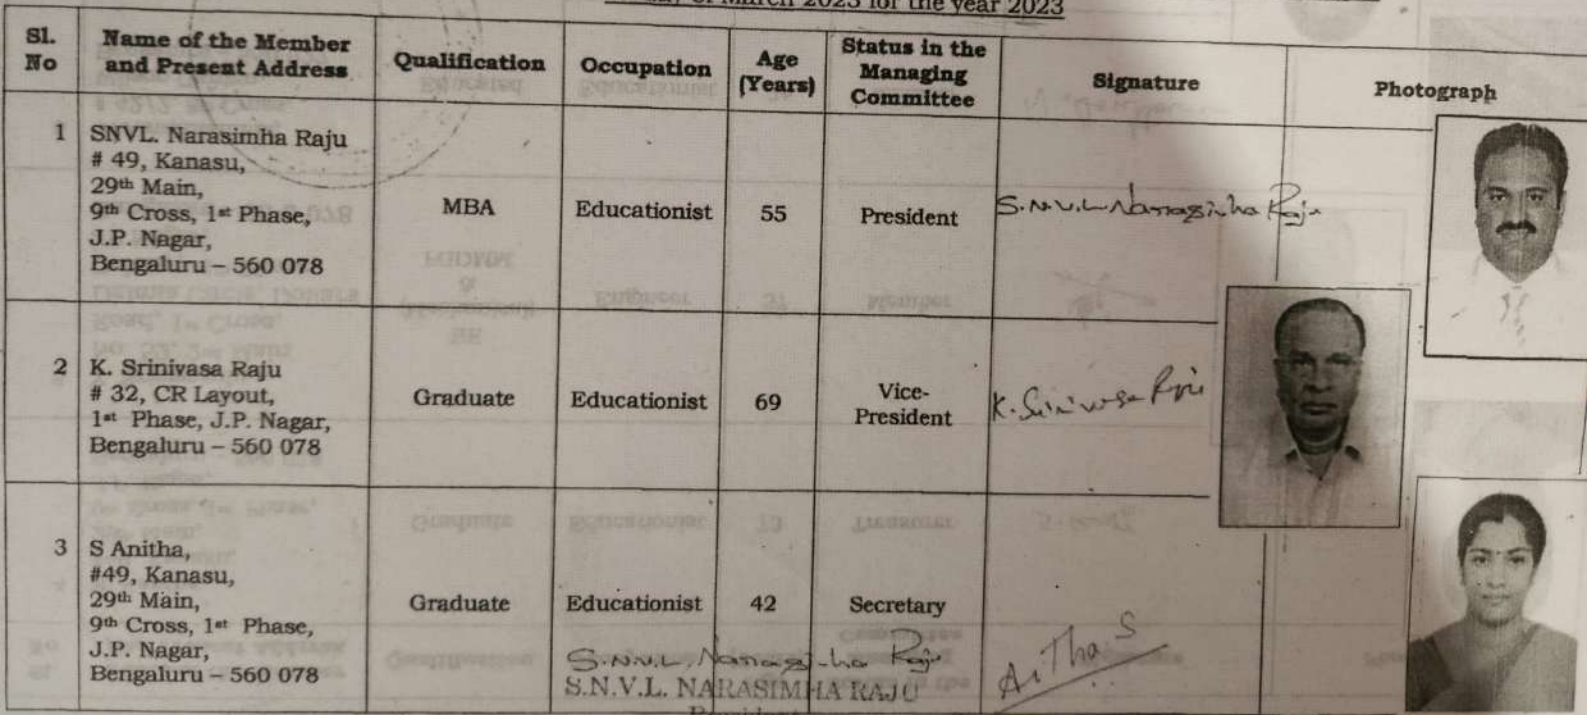 March 2023 for the year 2023
Sl. No
Name of the Member and Present Address
Qualification
Occupation
Age (Years)
Status in the Managing Committee
Signature
Photograph
1
SNVL. Narasimha Raju
# 49, Kanasu,
29th Main,
9th Cross, 1st Phase,
J.P. Nagar,
Bengaluru – 560 078
MBA
Educationist
55
President
S.N.V.L Narasimha Raju
2
K. Srinivasa Raju
# 32, CR Layout,
1st Phase, J.P. Nagar,
Bengaluru – 560 078
Graduate
Educationist
69
Vice-
President
K. Srinivasa Raju
3
S Anitha,
#49, Kanasu,
29th Main,
9th Cross, 1st Phase,
J.P. Nagar,
Bengaluru – 560 078
Graduate
Educationist
42
Secretary
Anitha.S
S.N.V.L. Narasimha Raju
S.N.V.L. NARASIMHA RAJU